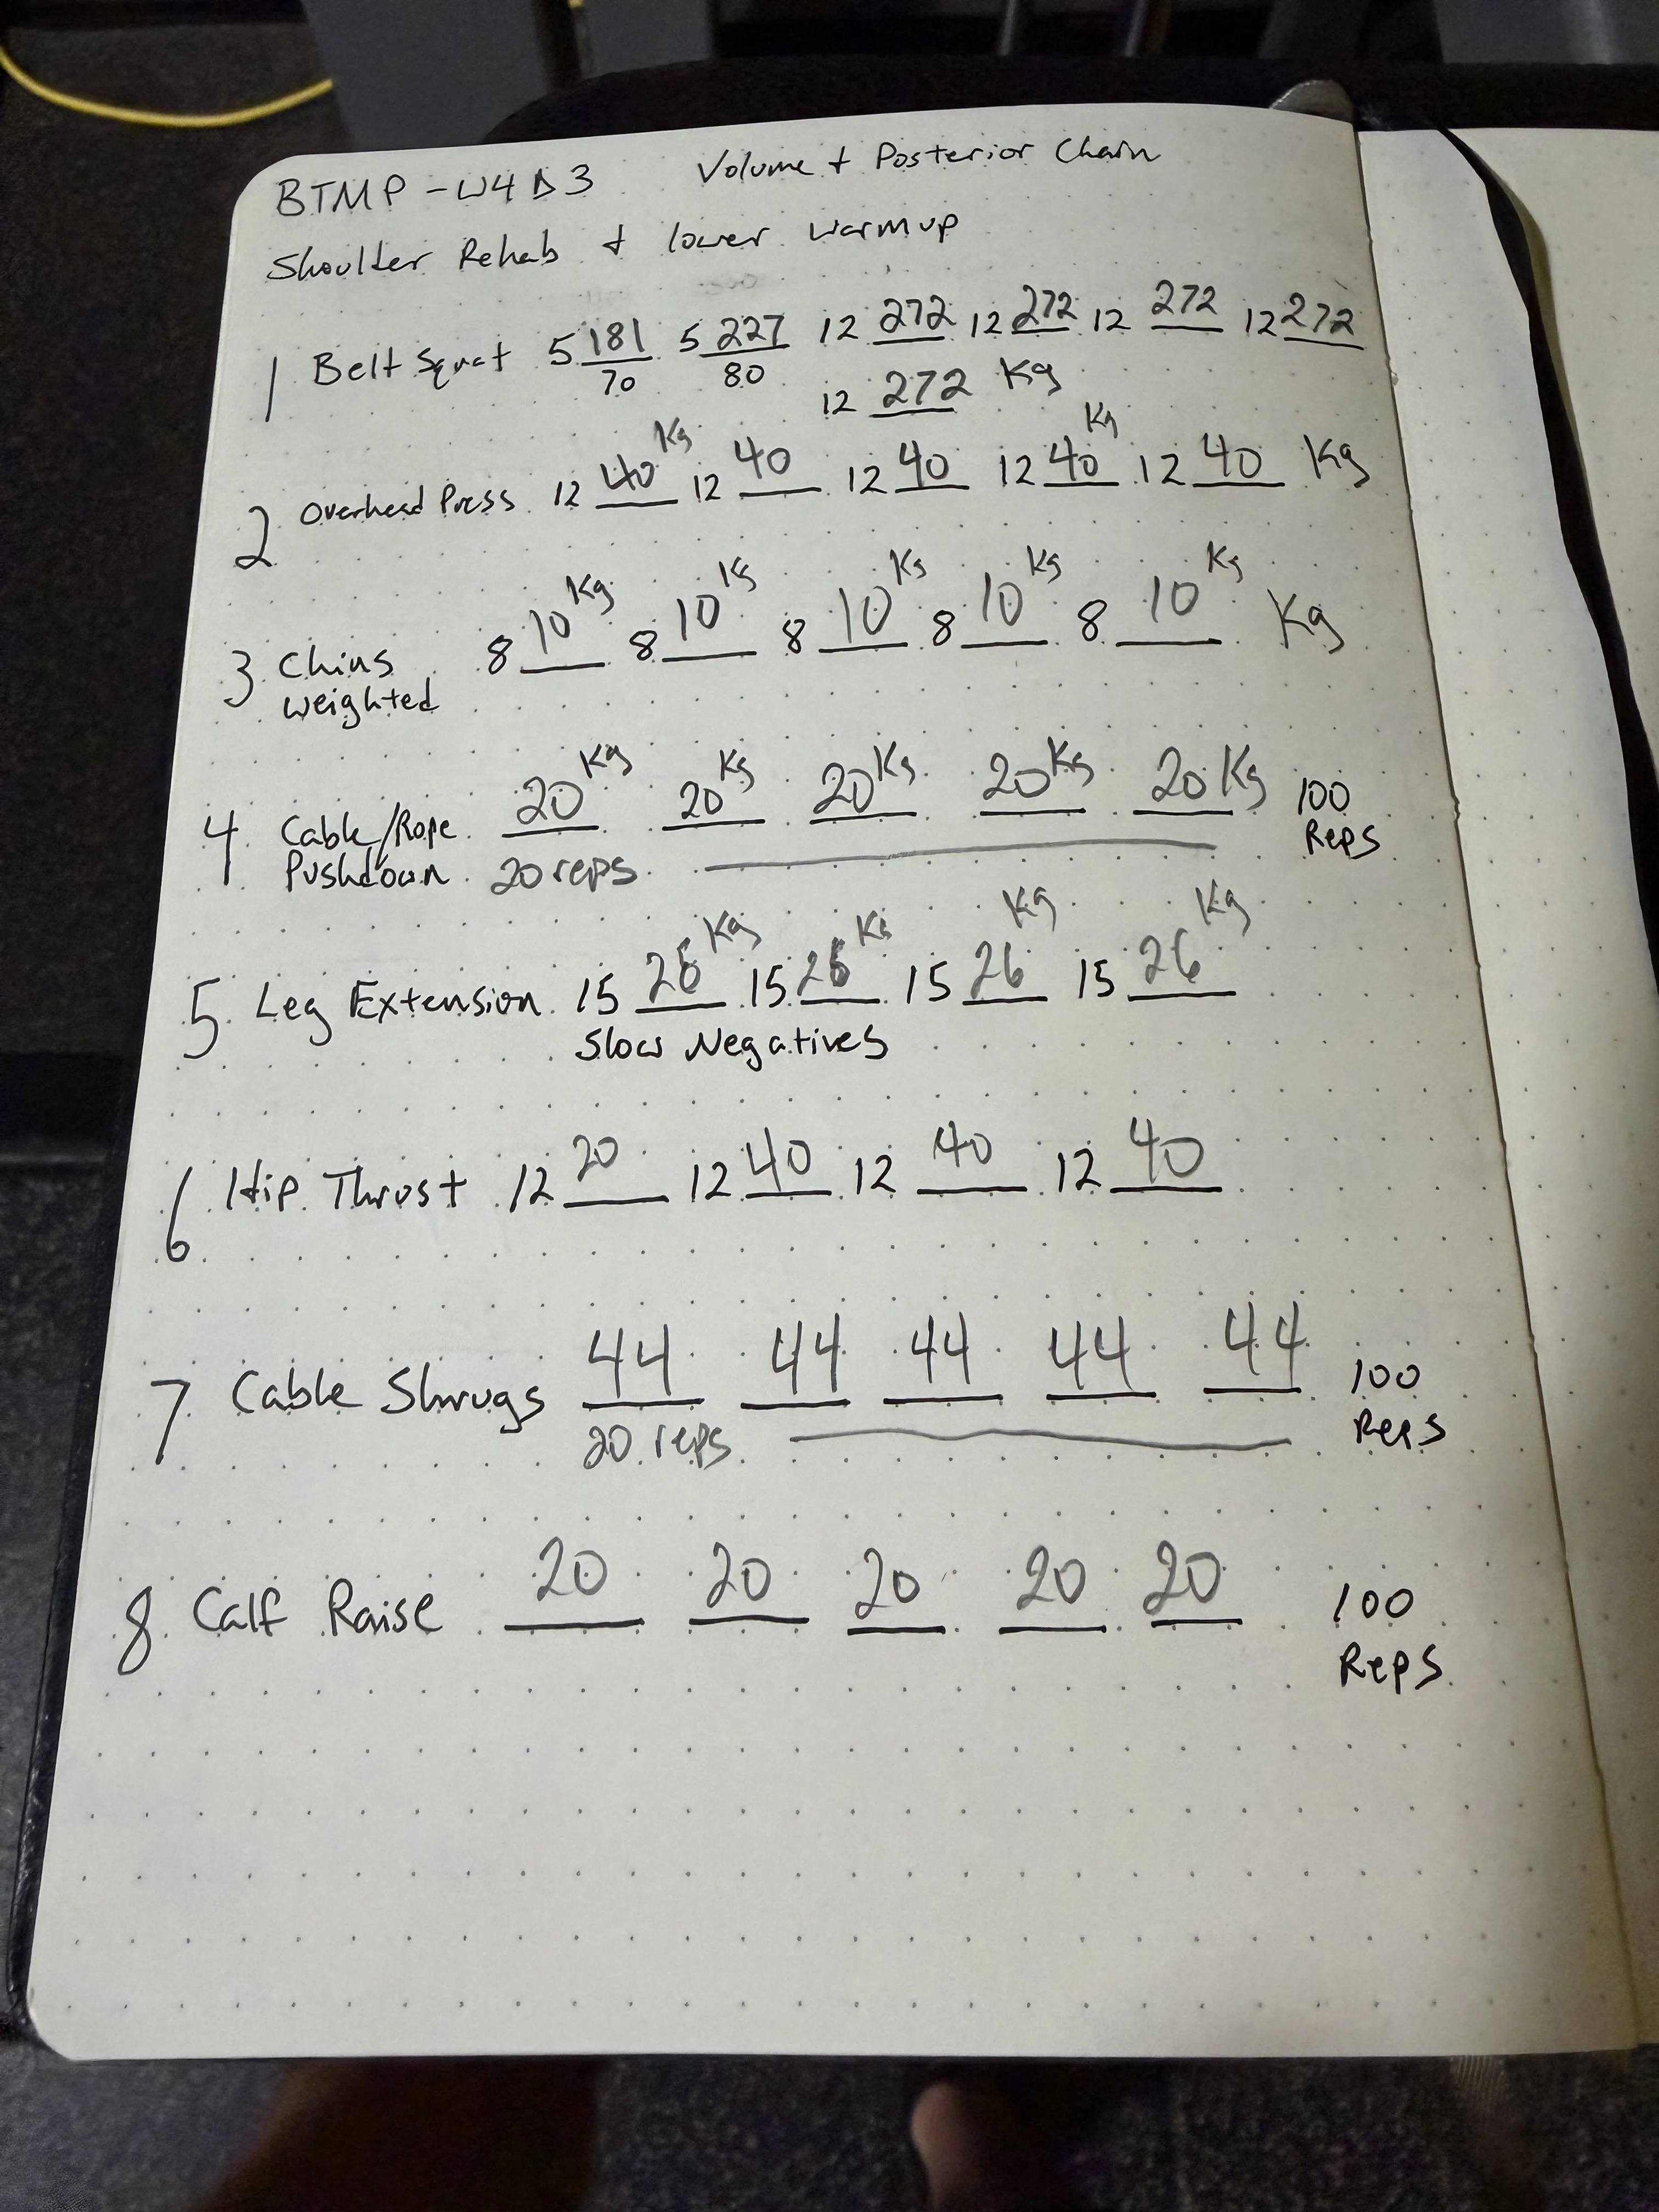 BTMP - W4D3 Volume + Posterior Chain
Shoulder Rehab + lower warmup
1 Belt Squat 5 181 5 227 12 272 12 272 12 272 12 272
70 80
12 272 Kg
2 Overhead Press 12 40 Kg 12 40 12 40 12 40 Kg 12 40 Kg
3 Chins 8 10 Kg 8 10 Kg 8 10 Kg 8 10 Kg 8 10 Kg Kg
weighted
4 Cable/Rope 20 Kg 20 Kg 20 Kg 20 Kg 20 Kg 100
Pushdown 20 reps Reps
5 Leg Extension 15 26 Kg 15 26 Kg 15 26 Kg 15 26 Kg
Slow Negatives
6 Hip Thrust 12 20 12 40 12 40 12 40
7 Cable Shrugs 44 44 44 44 44 100
20 reps Reps
8 Calf Raise 20 20 20 20 20 100
Reps